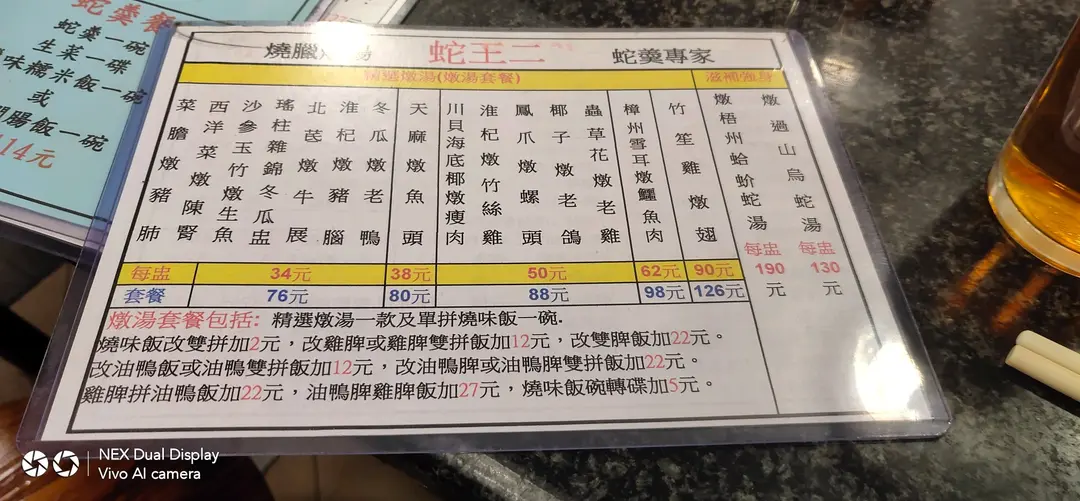 蛇羹餐
蛇羹一碗
生菜一碟
味糯米飯一碗
或
腸飯一碗
14元
燒臘燉湯 蛇王二 蛇羹專家
精選燉湯(燉湯套餐) 滋補強身
菜膽燉豬肺
西洋菜燉陳腎
沙參玉竹燉生魚
瑤柱雜錦冬瓜盅
北芪燉牛展
淮杞燉豬腦
冬瓜燉老鴨
天麻燉魚頭
川貝海底椰燉瘦肉
淮杞燉竹絲雞
鳳爪燉螺頭
椰子燉老鴿
蟲草花燉老雞
樟州雪耳燉鱷魚肉
竹笙雞燉翅
燉梧州蛤蚧蛇湯 每盅 190元
燉過山烏蛇湯 每盅 130元
每盅 34元 38元 50元 62元 90元
套餐 76元 80元 88元 98元 126元
燉湯套餐包括: 精選燉湯一款及單拼燒味飯一碗.
燒味飯改雙拼加2元，改雞脾或雞脾雙拼飯加12元，改雙脾飯加22元。
改油鴨飯或油鴨雙拼飯加12元，改油鴨脾或油鴨脾雙拼飯加22元。
雞脾拼油鴨飯加22元，油鴨脾雞脾飯加27元，燒味飯碗轉碟加5元。
NEX Dual Display
Vivo AI camera